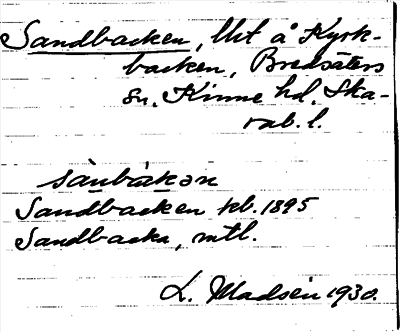 Sandbacken, lht å Kyrk-
backen, Bredsäters
sn. Kinne hd. Ska-
rab. l.
sànbàkən
Sandbacken kb. 1895
Sandbacka, mtl.
L. Madsén 1930.